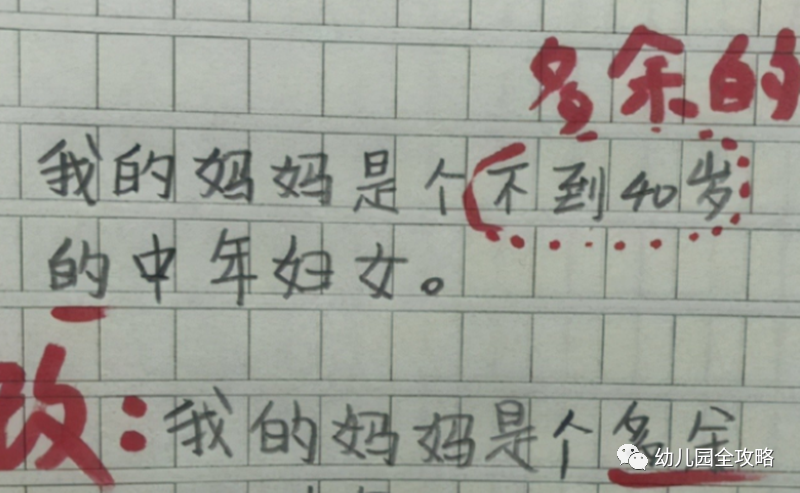 多余的
我的妈妈是个不到40岁
的中年妇女。
改:我的妈妈是个多余
幼儿园全攻略